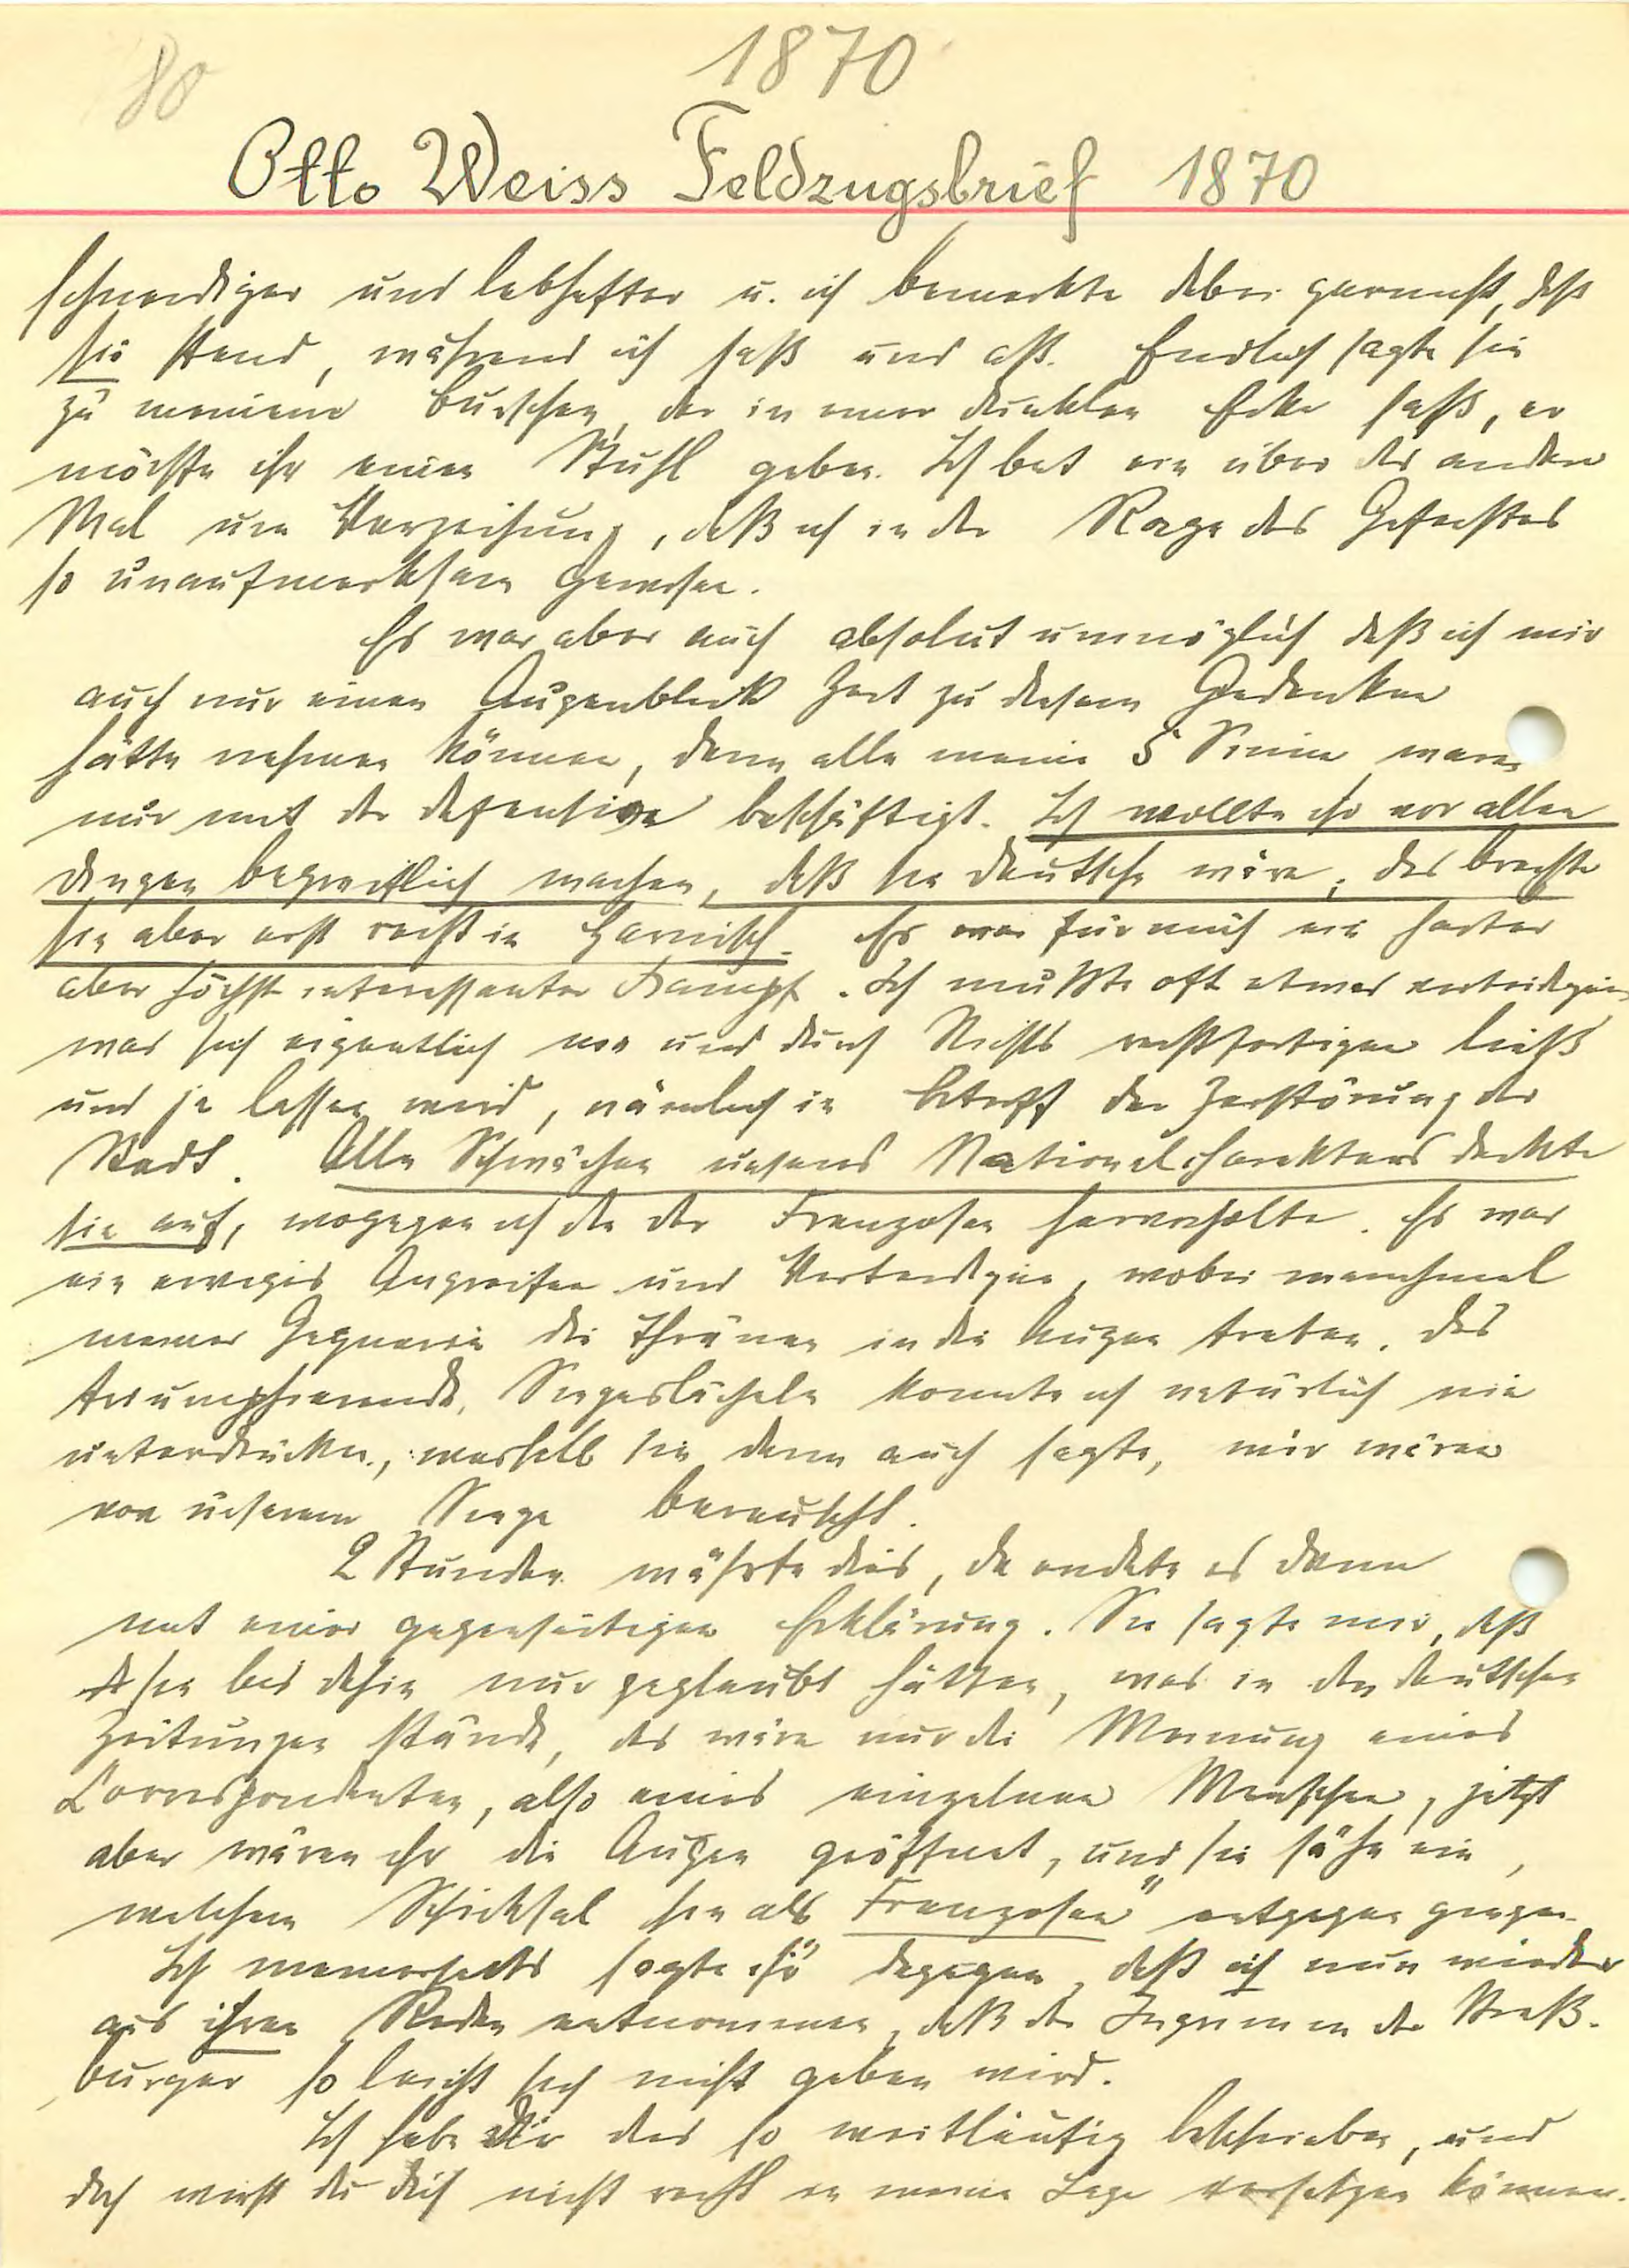 1870
80
Otto Weiss Feldzugsbrief 1870
schneidiger und lebhafter u. ich bemerkte dabei garnicht, daß
sie stand, während ich saß und aß. Endlich sagte sie
zu meinem Burschen, der in einer dunklen Ecke saß, er
möchte ihr einen Stuhl geben. Ich bat ein über das andere
Mal um Verzeihung, daß ich in der Rage des Gefechtes
so unaufmerksam gewesen.
Es war aber auch absolut unmöglich daß ich mir
auch nur einen Augenblick Zeit zu diesem Gedanken
hätte nehmen können, denn alle meine 5 Sinne waren
nur mit der Defensive beschäftigt. Ich wollte ihr vor allen
Dingen begreiflich machen, daß sie Deutsche wäre; das brachte
sie aber erst recht in Harnisch. Es war für mich ein harter
aber höchst interessanter Kampf. Ich mußte oft etwas verteidigen
was sich eigentlich von und durch Nichts rechtfertigen ließ
und je lassen wird, nämlich in Betreff der Zerstörung der
Stadt. Alle Schwächen unseres Nationalcharakters deckte
sie auf, wogegen ich die der Franzosen hervorholte. Es war
ein ewiges Angreifen und Verteidigen, wobei manchmal
meiner Gegnerin die Thränen in die Augen traten. Das
triumphierende, Siegeslächeln konnte ich natürlich nie
unterdrücken, weshalb sie dann auch sagte, wir wären
von unserem Siege berauscht.
2 Stunden währte dies, da endete es dann
mit einer gegenseitigen Erklärung. Sie sagte mir, daß
sie bis dahin nur geglaubt hätten, was in den deutschen
Zeitungen stände, das wäre nur die Meinung eines
Correspondenten, also eines einzelnen Menschen, jetzt
aber wären ihr die Augen geöffnet, und sie sähe ein,
welchem Schicksal sie als Franzosen" entgegen gingen.
Ich meinerseits sagte ihr dagegen, daß ich nun wieder
aus ihren Reden entnommen, daß der Ingrimm der Straß-
burger so leicht sich nicht geben wird.
Ich habe Dir das so weitläufig beschrieben, und
doch wirst du dich nicht recht in meine Lage versetzen können.